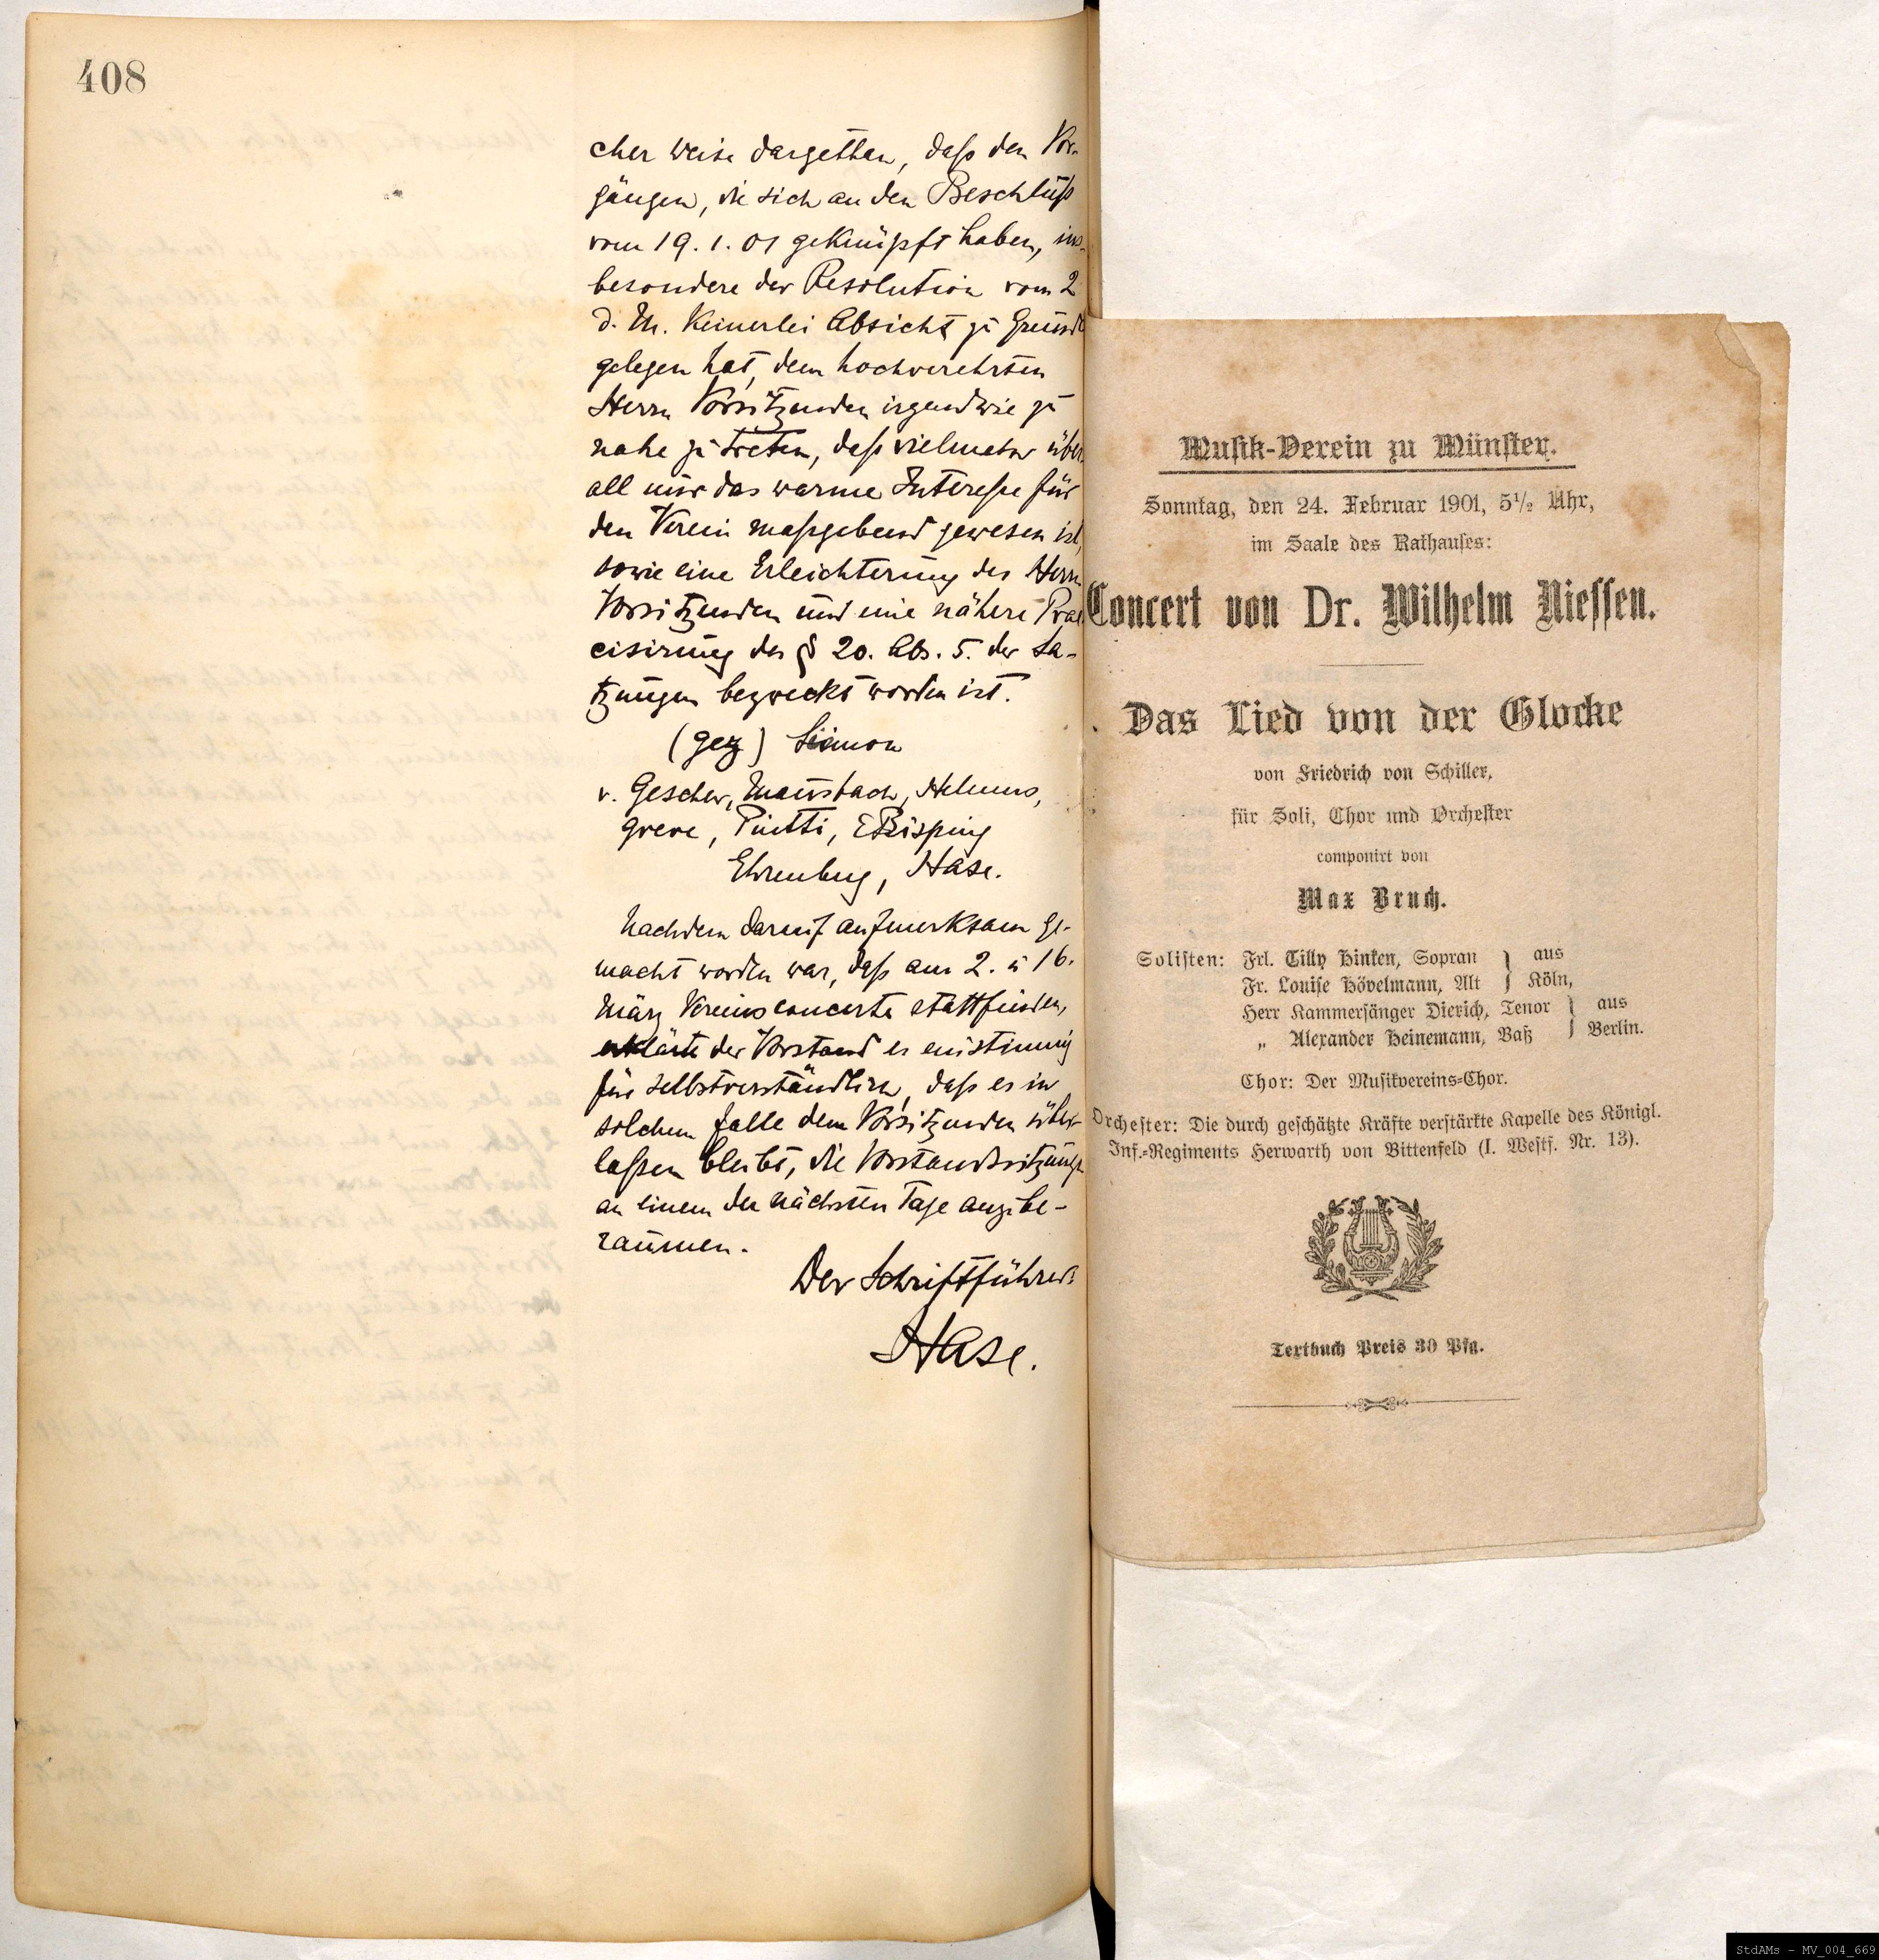 408
cher Weise dargethan, daß den Vor-
gängen, die sich an den Beschluß
vom 19. 1. 01 geknüpft haben, ins-
besondere der Resolution vom 2
d. M. keinerlei Absicht zu Grunde
gelegen hat, dem hochverehrten
Herrn Vorsitzenden irgendwie zu
nahe zu treten, daß vielmehr über
all nur das warme Interesse für
den Verein maßgebend gewesen ist,
sowie eine Erleichterung des Herrn
Vorsitzenden und eine nähere Prae
cisirung des § 20. Abs. 5. der Sa-
tzungen bezweckt worden ist.
(gez)
v. Gescher, Mausbach, Helmus,
Greve, Piutti, Bisping
Ehrenberg, Hase.
Nachdem darauf aufmerksam ge-
macht worden war, daß am 2. u 16.
März Vereinsconcerte stattfinden,
erklärte der Vorstand es einstimmig
für selbstverständlich, daß es in
solchem Falle dem Vorsitzenden über-
laßen bleibt, die Vorstandssitzung
an einem der nächsten Tage anzube-
raumen.
Der Schriftführer:
Hase.
Musik-Verein zu Münster.
Sonntag, den 24. Februar 1901, 5½ Uhr,
im Saale des Rathauses:
Concert von Dr. Wilhelm Niessen.
Das Lied von der Glocke
von Friedrich von Schiller,
für Soli, Chor und Orchester
componirt von
Max Bruch.
Solisten: Frl. Tilly Hinken, Sopran } aus
Fr. Louise Hövelmann, Alt } Köln,
Herr Kammersänger Dierich, Tenor } aus
„ Alexander Heinemann, Baß } Berlin.
Chor: Der Musikvereins-Chor.
Orchester: Die durch geschätzte Kräfte verstärkte Kapelle des Königl.
Inf.-Regiments Herwarth von Bittenfeld (I. Westf. Nr. 13).
Textbuch Preis 30 Pfg.
StdAMs - MV_004_669